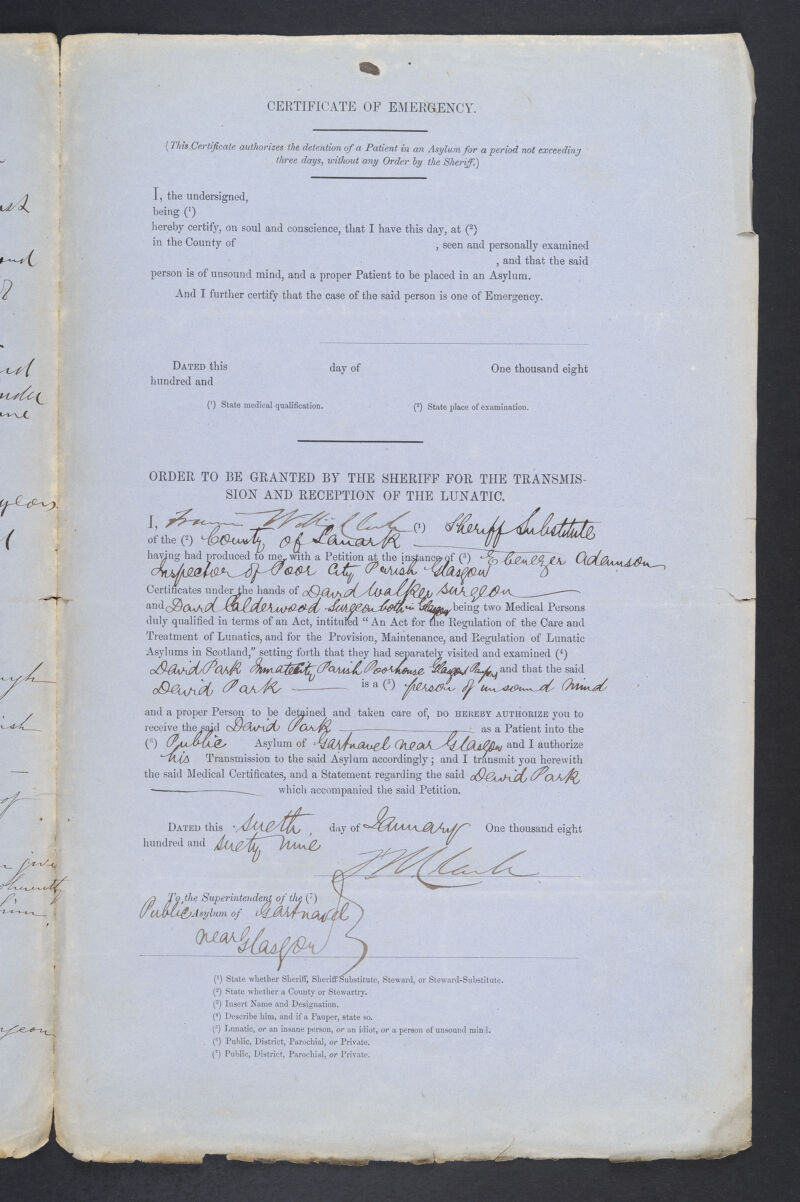 ast
and
years
CERTIFICATE OF EMERGENCY.
(This Certificate authorizes the detention of a Patient in an Asylum for a period not exceeding
three days, without any Order by the Sheriff.)
I, the undersigned,
being (1)
hereby certify, on soul and conscience, that I have this day, at (2)
in the County of , seen and personally examined
, and that the said
person is of unsound mind, and a proper Patient to be placed in an Asylum.
And I further certify that the case of the said person is one of Emergency.
DATED this day of One thousand eight
hundred and
(1) State medical qualification. (2) State place of examination.
ORDER TO BE GRANTED BY THE SHERIFF FOR THE TRANSMIS-
SION AND RECEPTION OF THE LUNATIC.
I, Clark (1) Sheriff Substitute
of the (2) County of Lanark
having had produced to me, with a Petition at the instance of (3) Ebenezer Adamson
Inspector of Poor City Parish Glasgow
Certificates under the hands of David Walker Surgeon
and David Calderwood Surgeon both in Glasgow being two Medical Persons
duly qualified in terms of an Act, intituled "An Act for the Regulation of the Care and
Treatment of Lunatics, and for the Provision, Maintenance, and Regulation of Lunatic
Asylums in Scotland," setting forth that they had separately visited and examined (4)
David Park Inmate City Parish Poorhouse Glasgow Pauper and that the said
David Park is a (5) person of unsound mind
and a proper Person to be detained and taken care of, DO HEREBY AUTHORIZE you to
receive the said David Park as a Patient into the
(6) Public Asylum of Gartnavel near Glasgow and I authorize
his Transmission to the said Asylum accordingly; and I transmit you herewith
the said Medical Certificates, and a Statement regarding the said David Park
which accompanied the said Petition.
DATED this day of January One thousand eight
hundred and nine
Clark
To the Superintendent of the (7)
Public Asylum of Gartnavel
near Glasgow
(1) State whether Sheriff, Sheriff-Substitute, Steward, or Steward-Substitute.
(2) State whether a County or Stewartry.
(3) Insert Name and Designation.
(4) Describe him, and if a Pauper, state so.
(5) Lunatic, or an insane person, or an idiot, or a person of unsound mind.
(6) Public, District, Parochial, or Private.
(7) Public, District, Parochial, or Private.